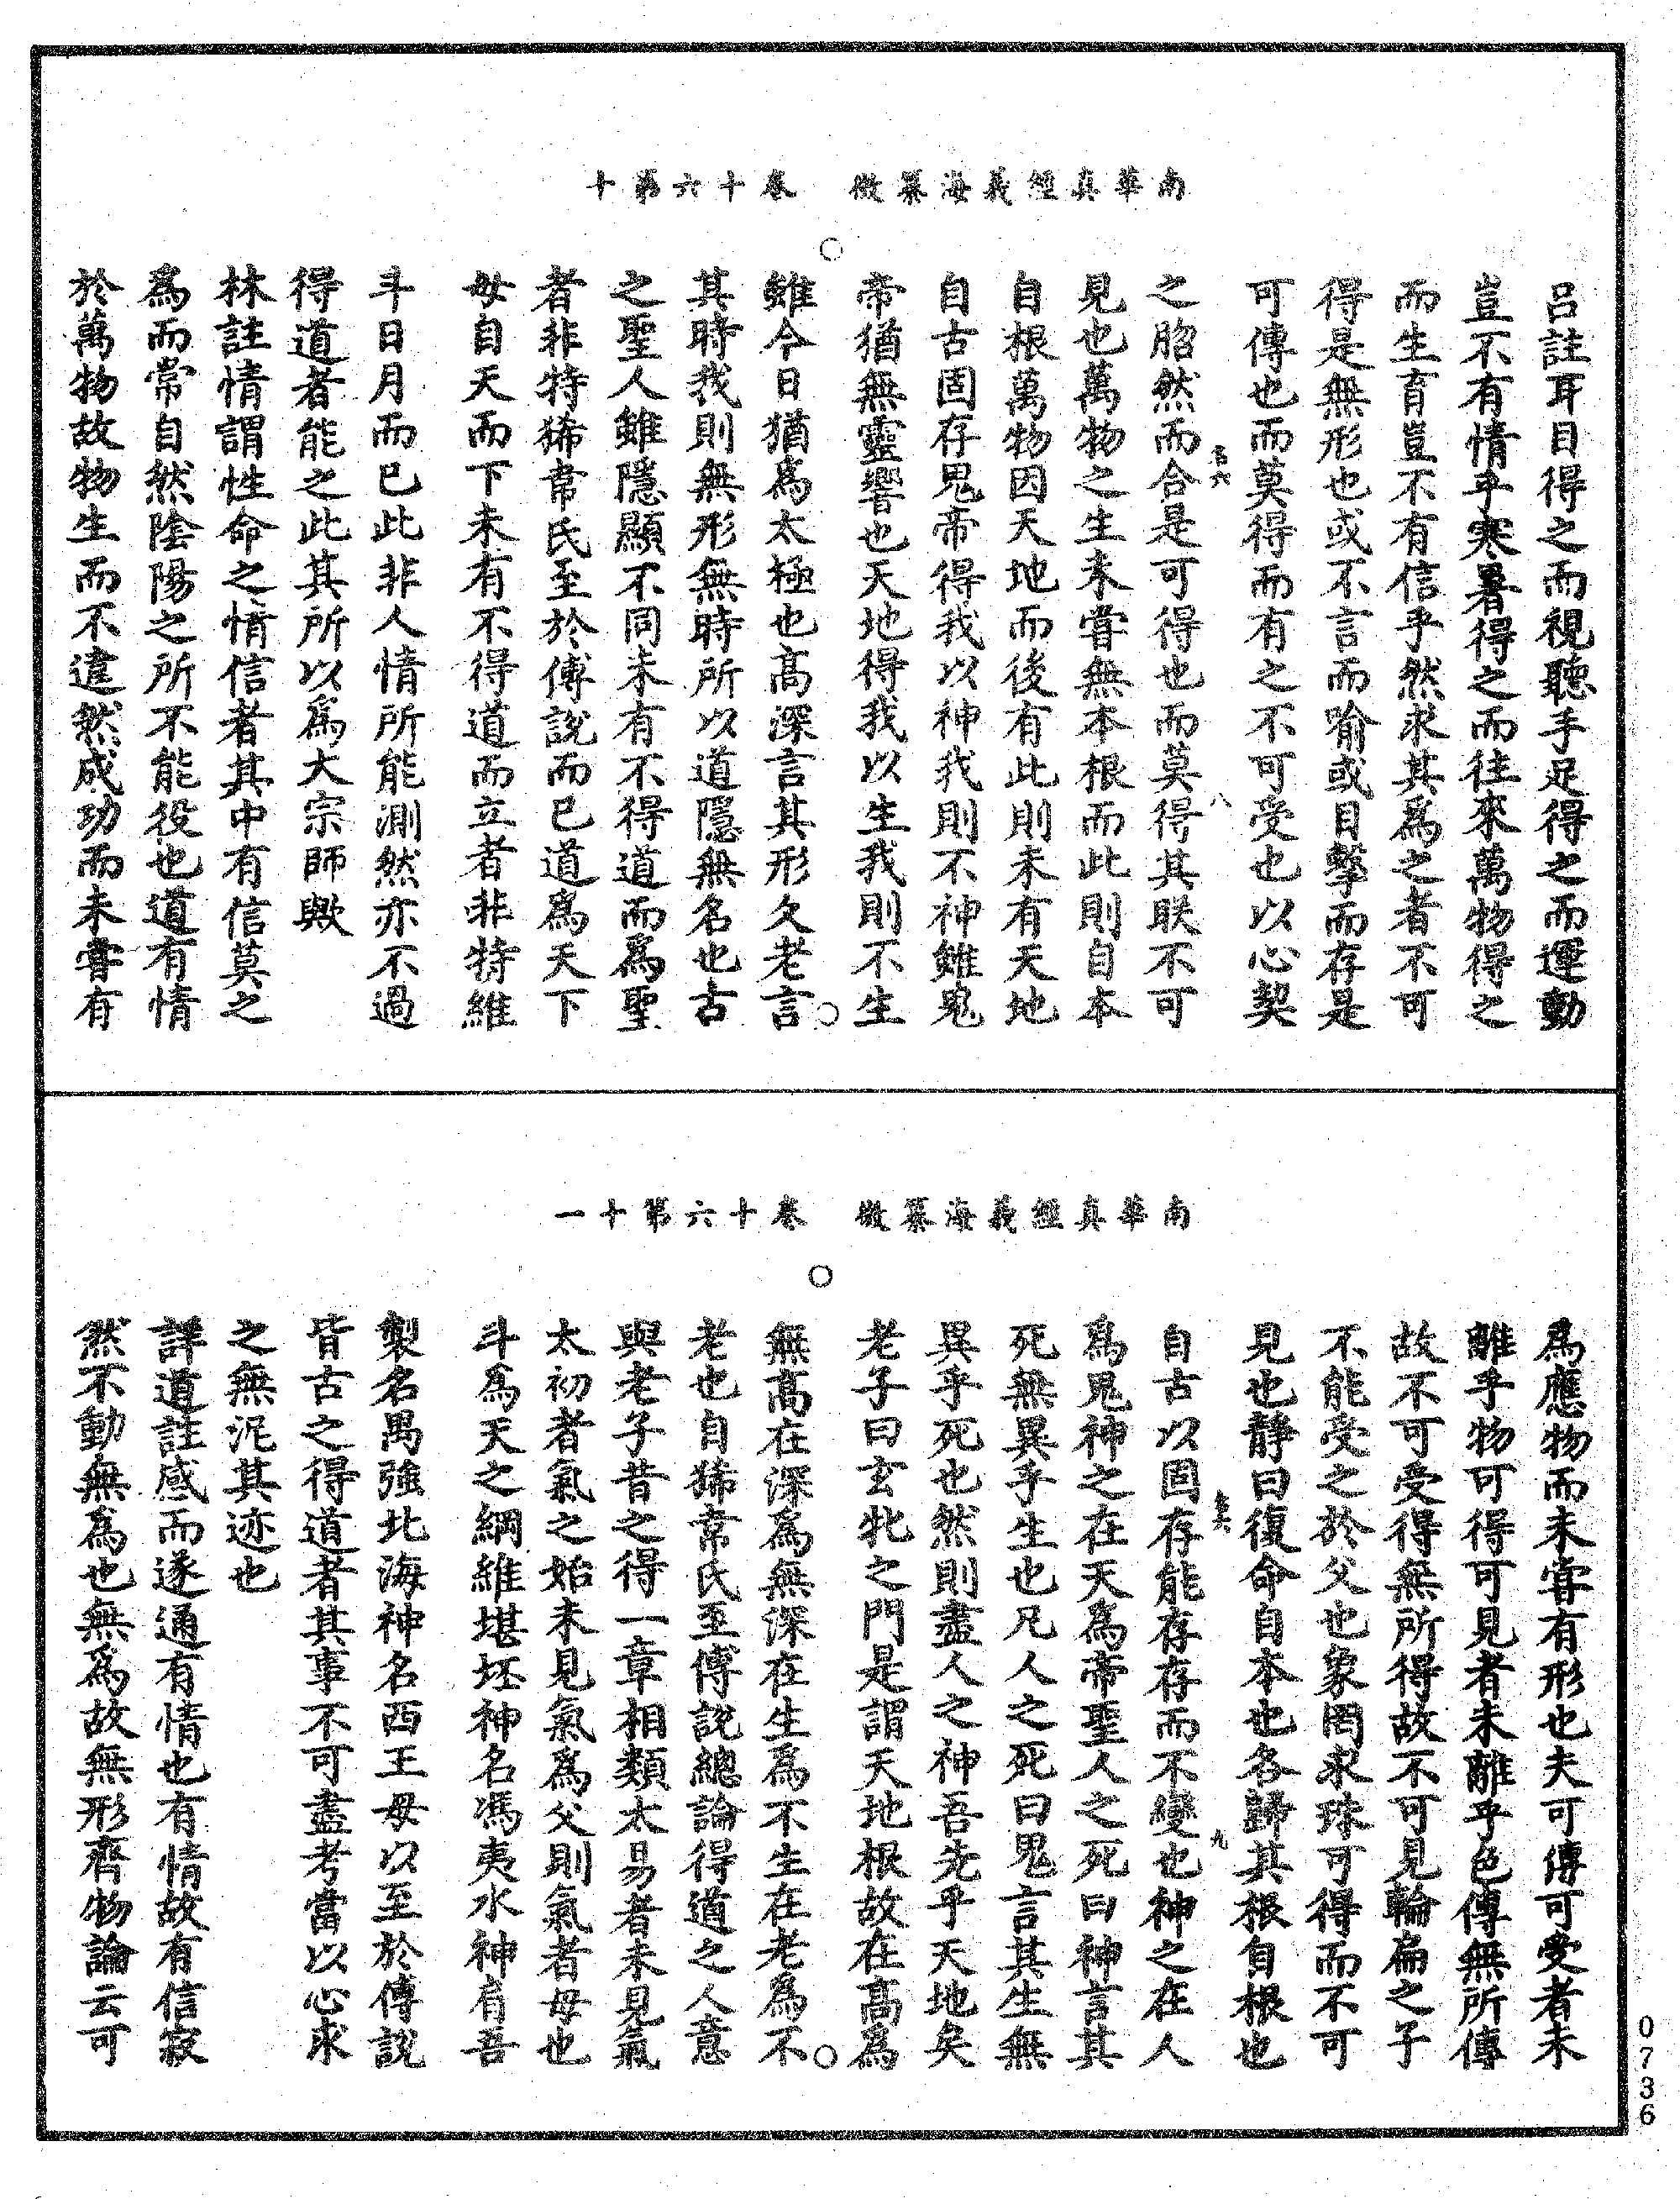 南華真經義海纂微　卷十六第十
呂註耳目得之而視聽手足得之而運動
豈不有情乎寒暑得之而往來萬物得之
而生育豈不有信乎然求其爲之者不可
得是無形也或不言而喻或目擊而存是
可傳也而莫得而有之不可受也以心契
之脗然而合是可得也而莫得其眹不可
見也萬物之生未嘗無本根而此則自本
自根萬物因天地而後有此則未有天地
自古固存鬼帝得我以神我則不神雖鬼
帝猶無靈響也天地得我以生我則不生
雖今日猶爲太極也高深言其形久老言
其時我則無形無時所以道隱無名也古
之聖人雖隱顯不同未有不得道而爲聖
者非特狶韋氏至於傅說而已道爲天下
母自天而下未有不得道而立者非特維
斗日月而已此非人情所能測然亦不過
得道者能之此其所以爲大宗師歟
林註情謂性命之情信者其中有信莫之
爲而常自然陰陽之所不能役也道有情
於萬物故物生而不違然成功而未嘗有
南華真經義海纂微　卷十六第十一
爲應物而未嘗有形也夫可傳可受者未
離乎物可得可見者未離乎色傳無所傳
故不可受得無所得故不可見輪扁之子
不能受之於父也象罔求珠可得而不可
見也靜曰復命自本也各歸其根自根也
自古以固存能存存而不變也神之在人
爲鬼神之在天爲帝聖人之死曰神言其
死無異乎生也凡人之死曰鬼言其生無
異乎死也然則盡人之神吾先乎天地矣
老子曰玄牝之門是謂天地根故在高爲
無高在深爲無深在生爲不生在老爲不
老也自狶韋氏至傅說總論得道之人意
與老子昔之得一章相類太易者未見氣
太初者氣之始未見氣爲父則氣者母也
斗爲天之綱維堪坯神名馮夷水神肩吾
製名禺強北海神名西王母以至於傅說
皆古之得道者其事不可盡考當以心求
之無泥其迹也
詳道註感而遂通有情也有情故有信寂
然不動無爲也無爲故無形齊物論云可
八
九
0736